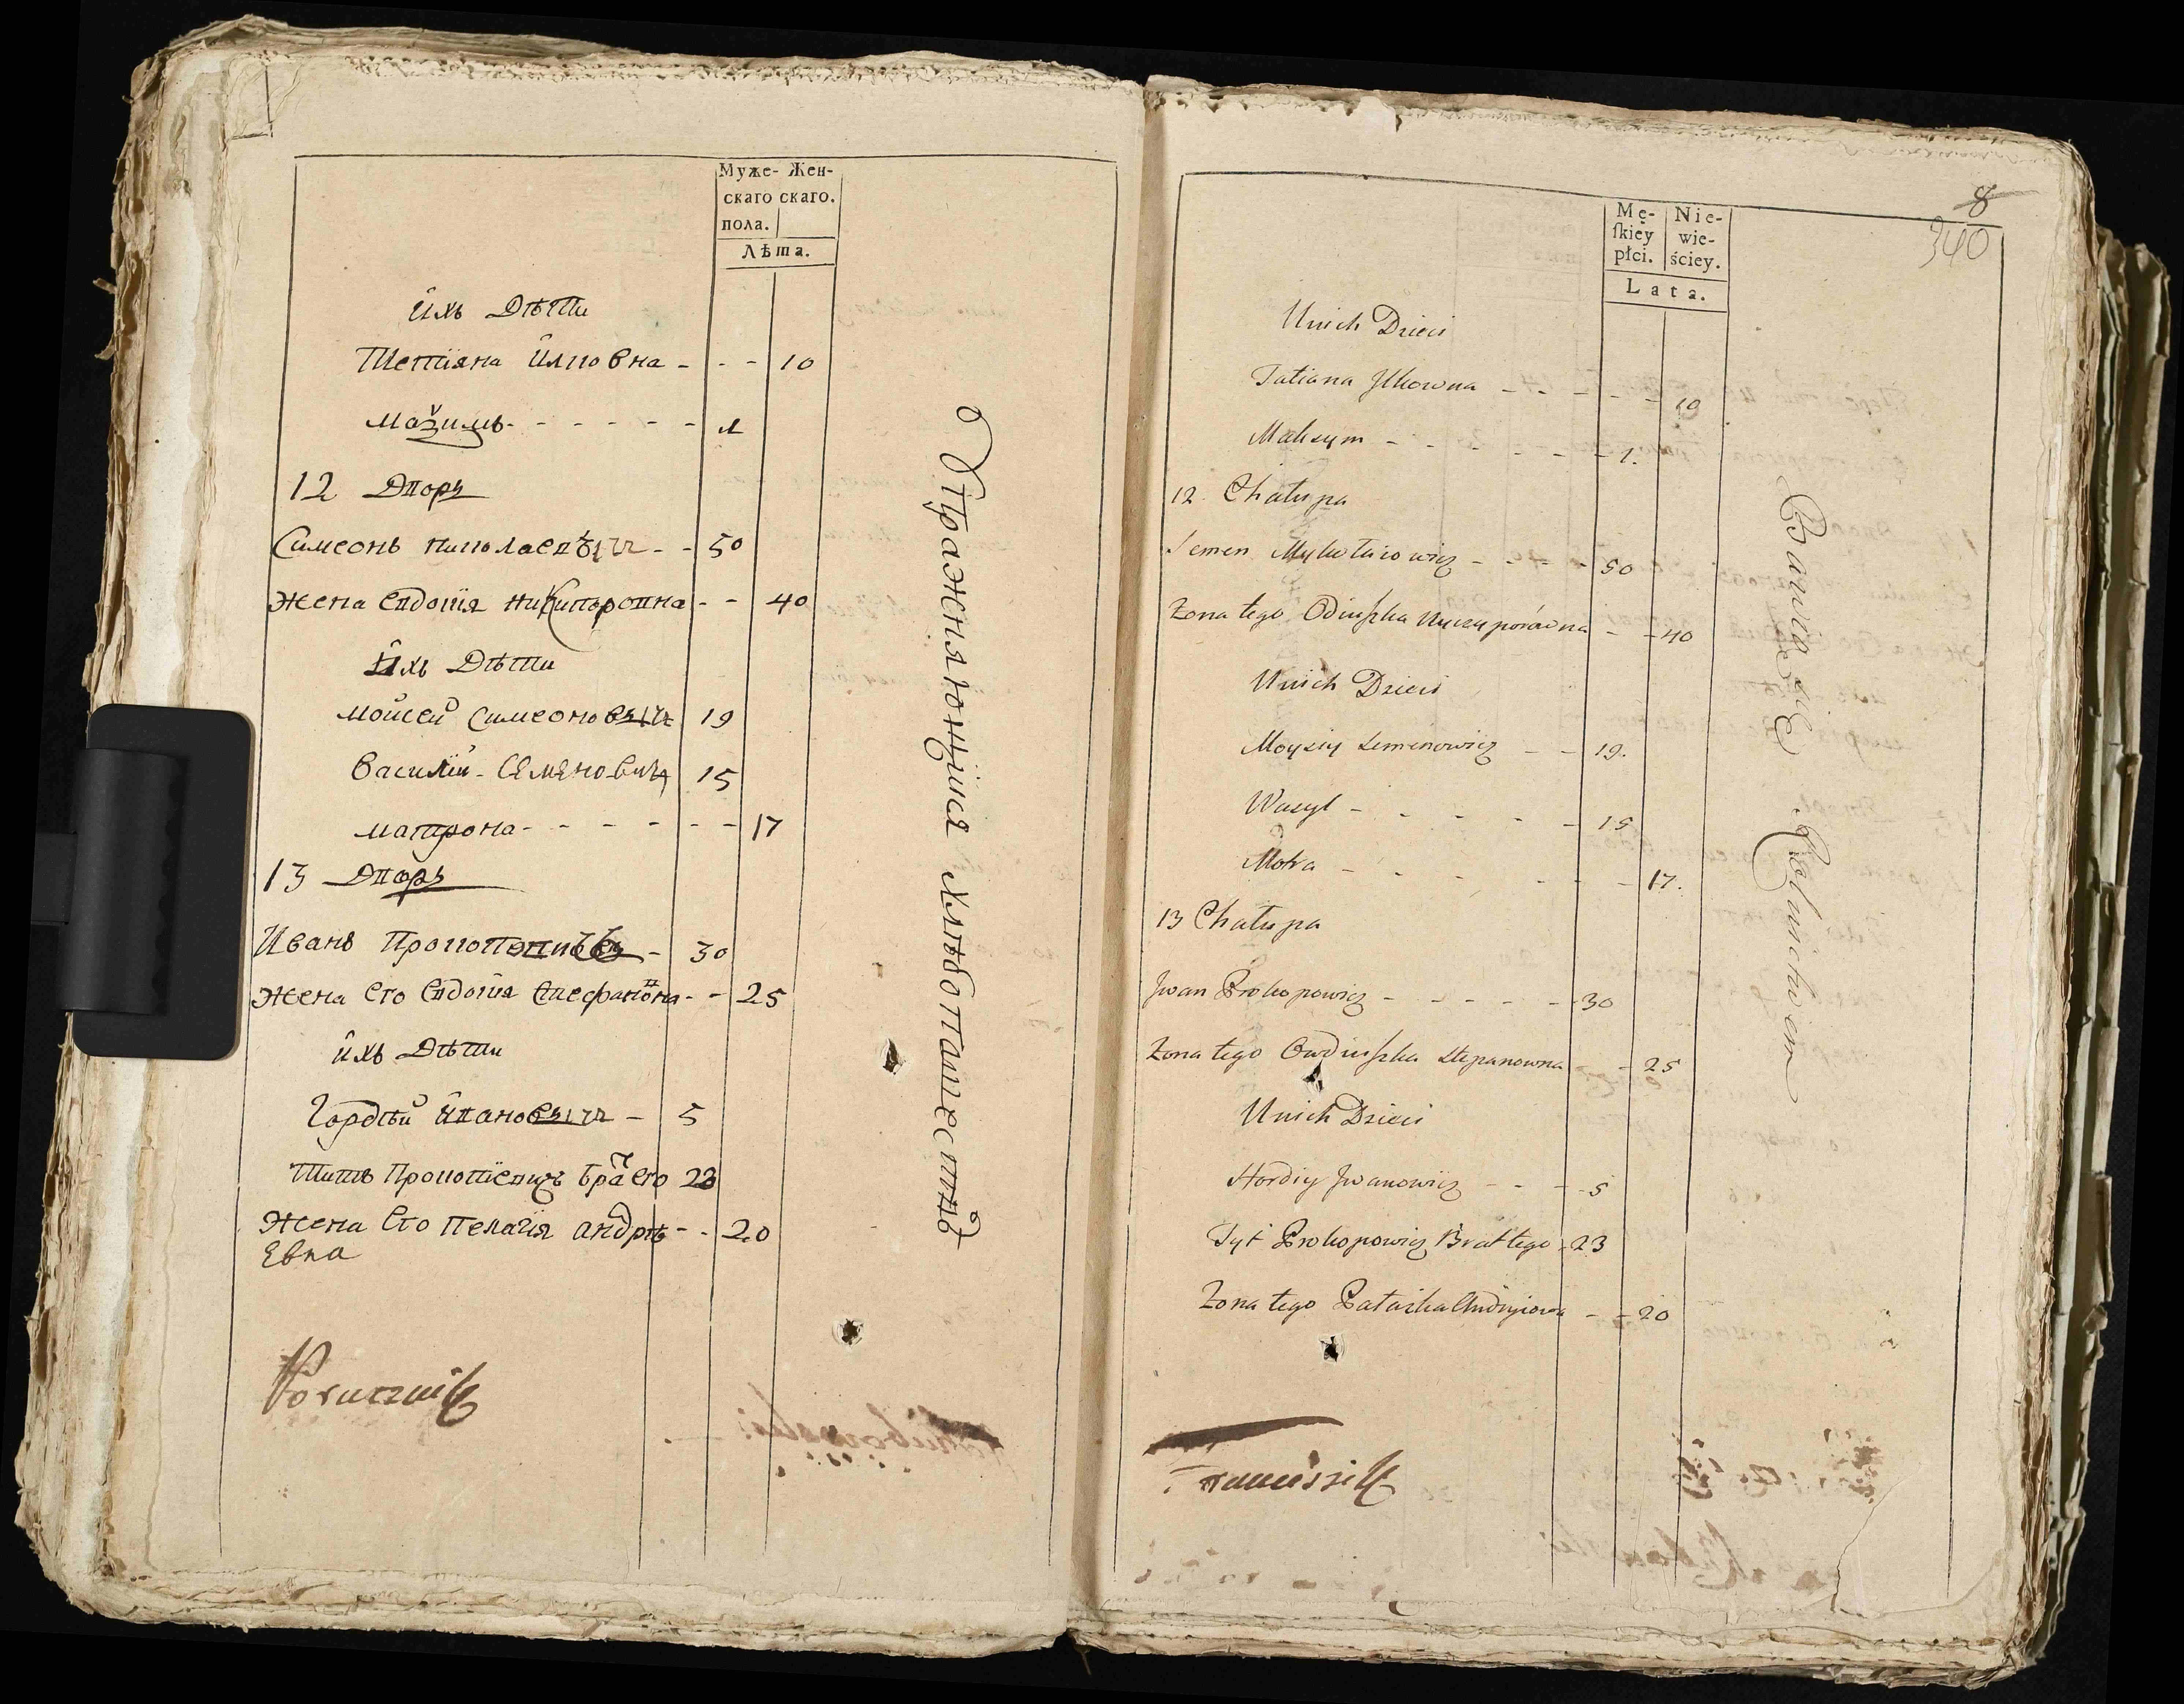 Муже- Жен-
скаго скаго.
пола.
Лѣта.
ихъ Дѣти
Тетіяна Илковна - - - 10
Мазимъ - - - - - 1
12 Дворъ
Симеонъ Николаевичъ - - 50
Жена Евдокія Никипоровна - - 40
Ихъ Дѣти
Мойсей Симеоновичъ 19
Василій - Семеновичъ 15
Матрона - - - - - - 17
13 Дворъ
Иванъ - 30
Жена Его Евдокія Стефановна - - 25
ихъ Дѣти
Гордѣй Ивановичъ - 5
Титъ Прокопіевичъ братъ Его 23
Жена Его Пелагія Андрѣ - - 20
Евна
Упражняющіися хлѣбопашествѣ
Mę-
ſkiey
płci.
Nie-
wie-
ściey.
Lata.
8
340
Unich Dzieci
Tatiana Jlkowna - - - - - 10
Maksym - - - - - - 1.
12. Chałupa
Semen - - - - 50
Zona tego Nyczyporówna - - 40
Unich Dzieci
Moysiy Semenowicz - - 19.
Wasyl - - - - - 15
Motra - - - - - - 17.
13 Chałupa
Jwan Prokopowicz - - - - - 30
Zona tego Owdiuszka Stepanowna - - 25
Unich Dzieci
Hordiy Jwanowicz - - - 5
Tyt Prokopowicz Brat tego - 23
Zona tego - - 20
Bawią się Rolnictwem